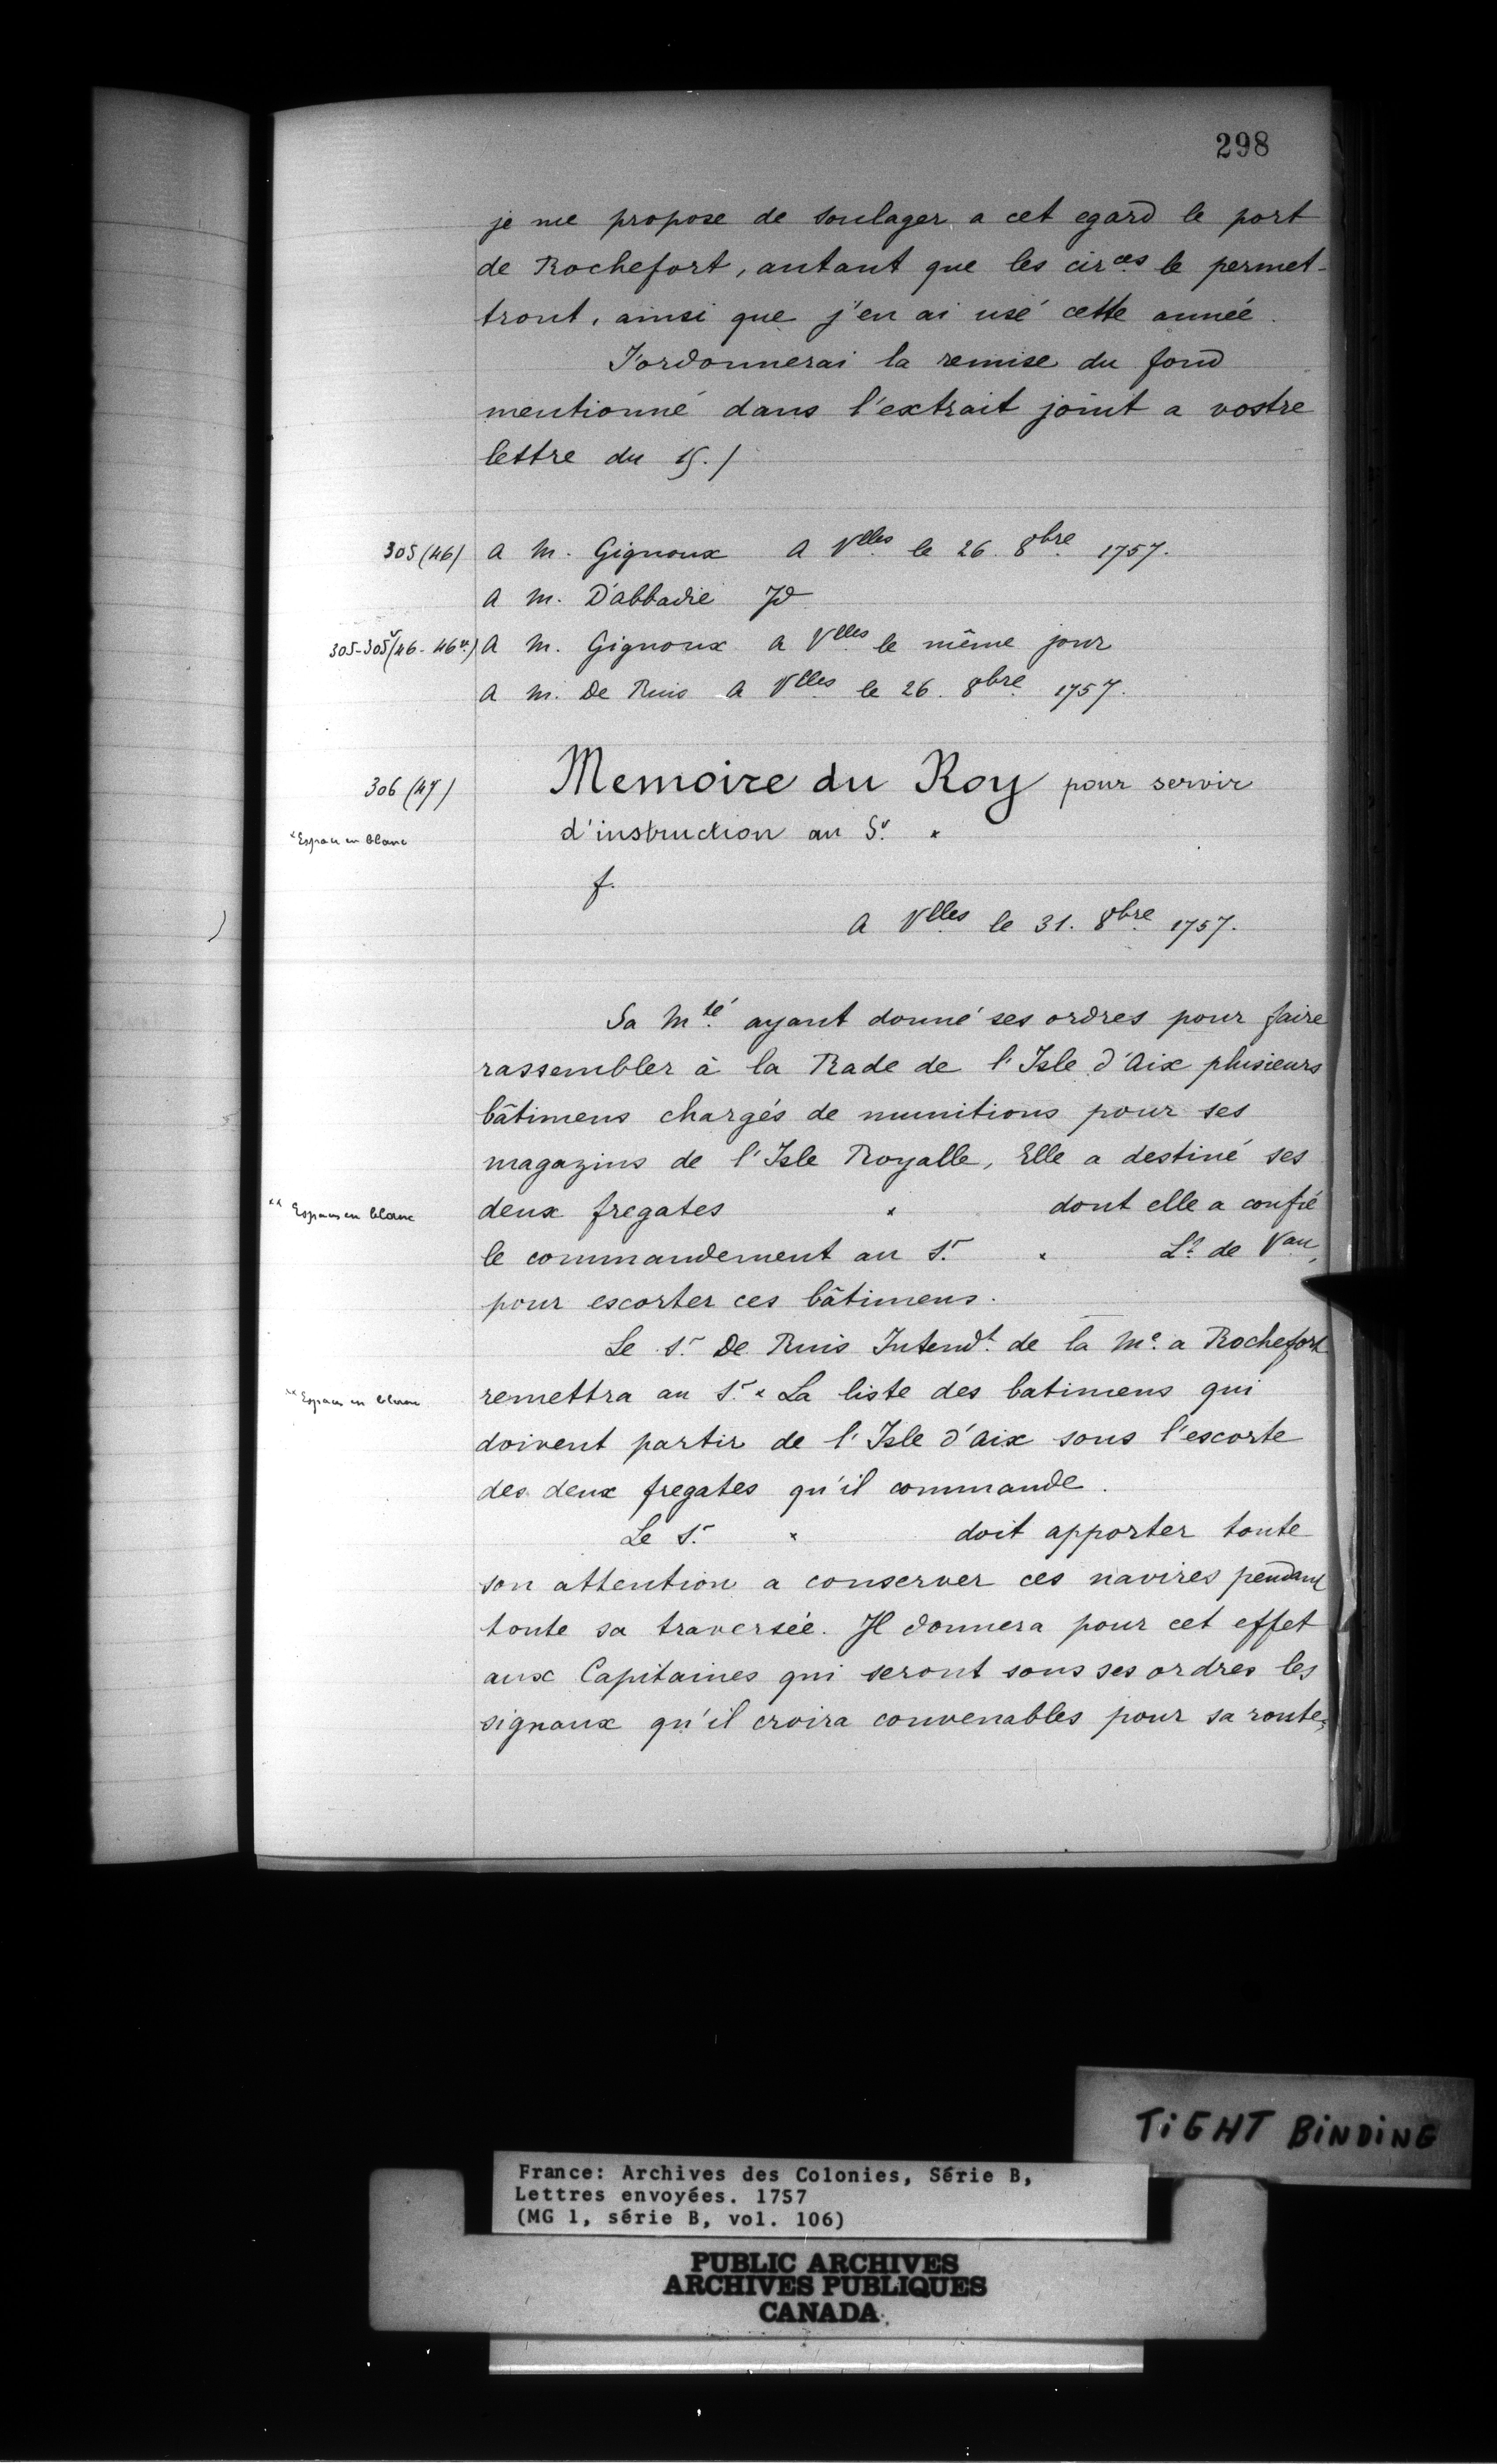 298
je me propose de soulager a cet egard le port
de Rochefort, autant que les circes le permet-
tront, ainsi que j'en ai usé cette année.
J'ordonnerai la remise du fond
mentionné dans l'extrait joint a vostre
lettre du 15./
305 (46) a M. Gignoux A Vlles le 26. 8bre 1757.
a M. D'abbadie Id
305-305v (46-46v.) A M. Gignoux a Vlles le même jour
a M. De Ruis A Vlles le 26. 8bre 1757.
306 (47) Memoire du Roy pour servir
*Espace en blanc d'instruction au Sr. *
f.
A Vlles le 31. 8bre 1757.
Sa Mté ayant donné ses ordres pour faire
rassembler à la Rade de l'Isle d'Aix plusieurs
bâtimens chargés de munitions pour ses
magazins de l'Isle Royalle, Elle a destiné ses
** Espaces en blanc deux fregates * dont elle a confié
le commandement au Sr. * Lt. de Vau,
pour escorter ces bâtimens.
Le Sr. De Ruis Intendt. de la Me. a Rochefort
** Espaces en blanc remettra au Sr. * La liste des batimens qui
doivent partir de l'Isle d'Aix sous l'escorte
des deux fregates qu'il commande.
Le Sr. * doit apporter toute
son attention a conserver ces navires pendant
toute sa traversée. Il donnera pour cet effet
aux Capitaines qui seront sous ses ordres les
signaux qu'il croira convenables pour sa route,
TiGHT BiNDiNG
France: Archives des Colonies, Série B,
Lettres envoyées. 1757
(MG 1, série B, vol. 106)
PUBLIC ARCHIVES
ARCHIVES PUBLIQUES
CANADA